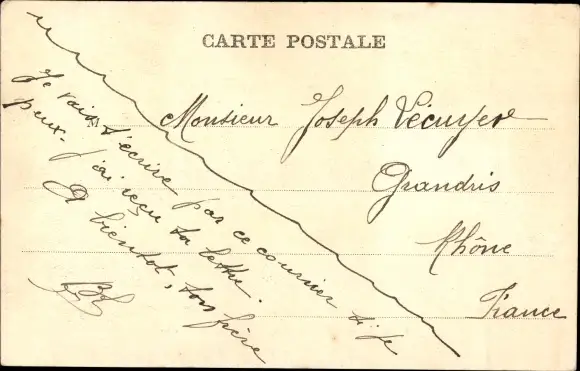 CARTE POSTALE
M
Monsieur Joseph Lécuyer
Grandris
Rhône
France
Je vais t'écrire par ce courrier si je
peux. J'ai reçu ta lettre.
A bientôt, ton frère